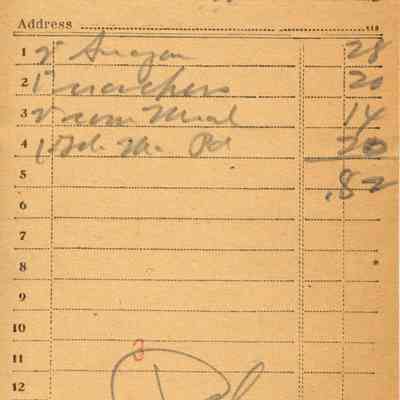 Address
1 5 Sugar 28
2 1 matches 20
3 5 corn Meal 14
4 1 Pd 20
5 .82
6
7
8
9
10
3
11
12 Pd